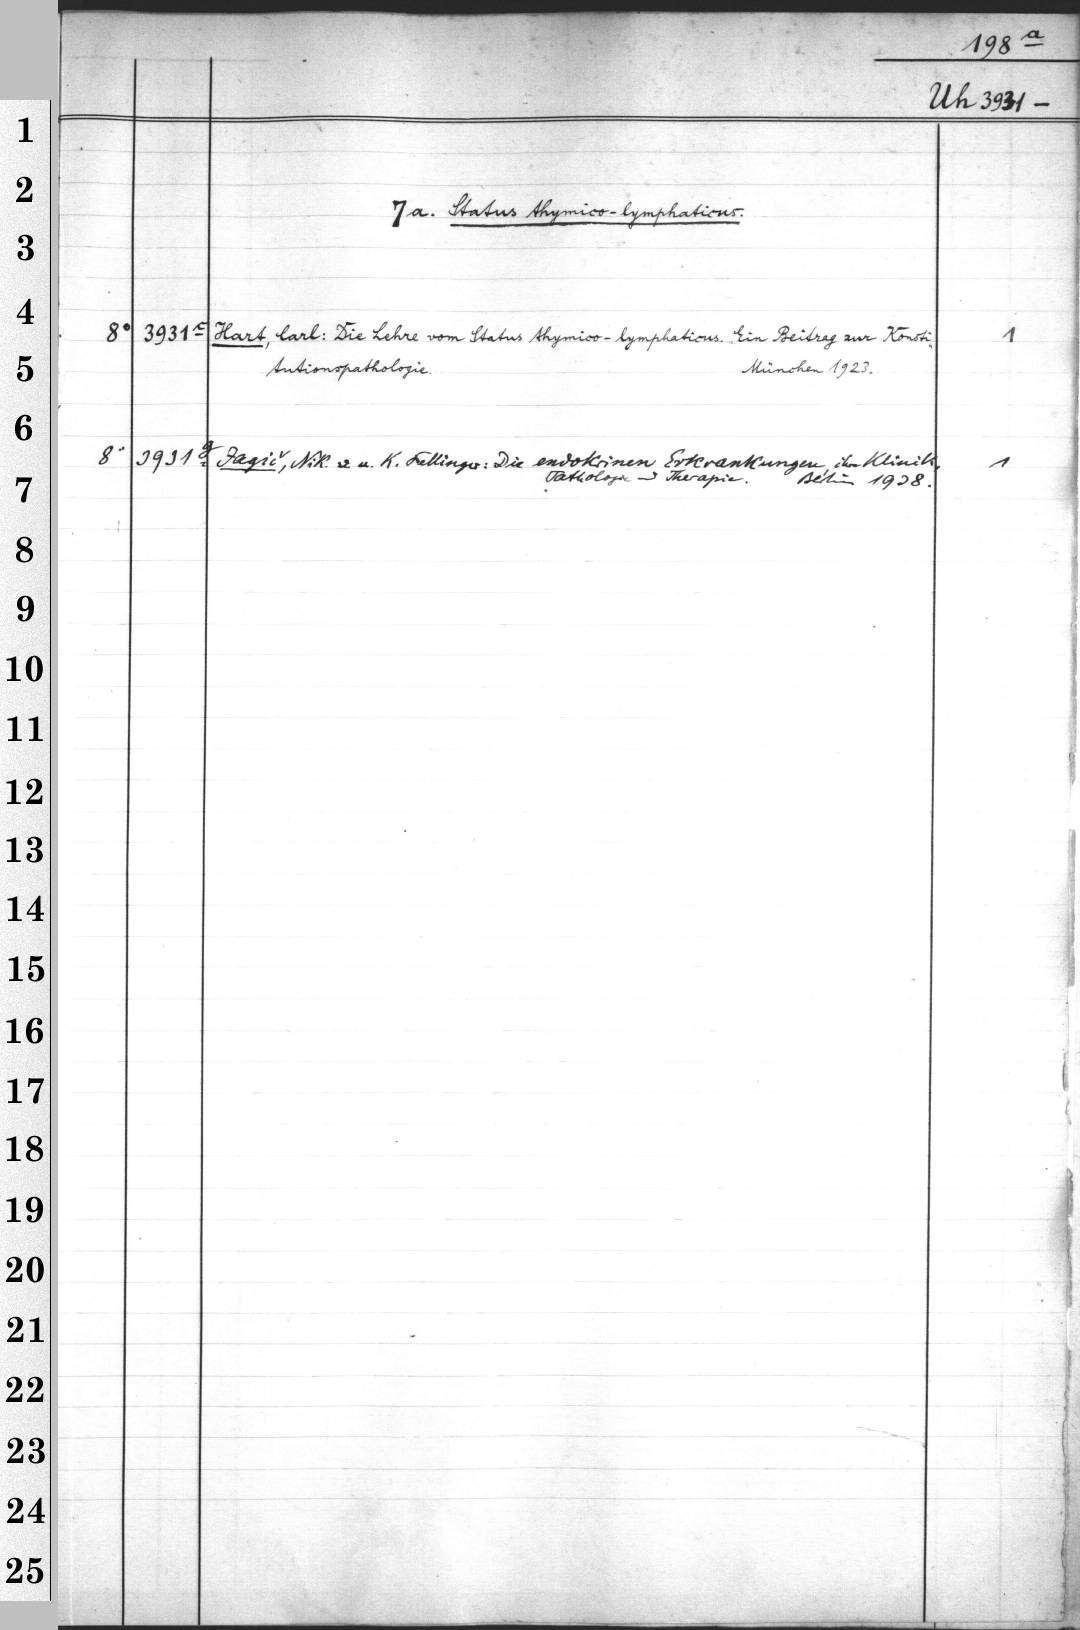 198 a
Uh 3931 –
1
2
7a. Status thymico-lymphaticus.
3
4
8° 3931 c Hart, Carl: Die Lehre vom Status thymico-lymphaticus. Ein Beitrag zur Konsti- 1
5
tutionspathologie. München 1923.
6
8° 3931 g Jagič, Nik. u. K. Fellinger: Die endokrinen Erkrankungen, ihre Klinik, 1
7
Pathologie Therapie. Berlin 1938.
8
9
10
11
12
13
14
15
16
17
18
19
20
21
22
23
24
25